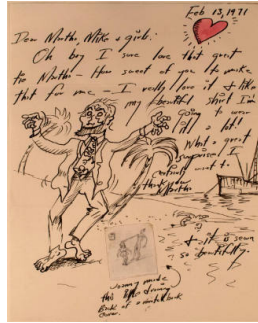 Feb 13, 1971
Dear Martha, Mike & girls:
Oh boy I sure love that great
Martha - How sweet of you to make
that for me - I really love it & like
my beautiful shirt I'm
going to wear
it a lot!
What a great
surprise! I
certainly want to
thank you
Martha
& it is sewn
so beautifully.
made
this little drawing
Back of a match book